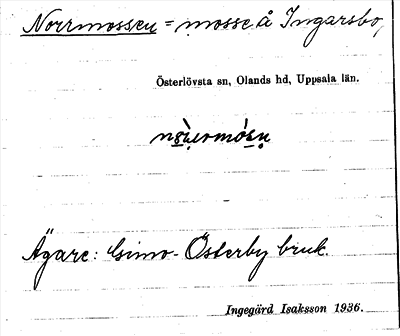 Norrmossen = mosse å Ingarsbo,
Österlövsta sn, Olands hd, Uppsala län.
Ägare: Gimo-Österby bruk.
Ingegärd Isaksson 1936.